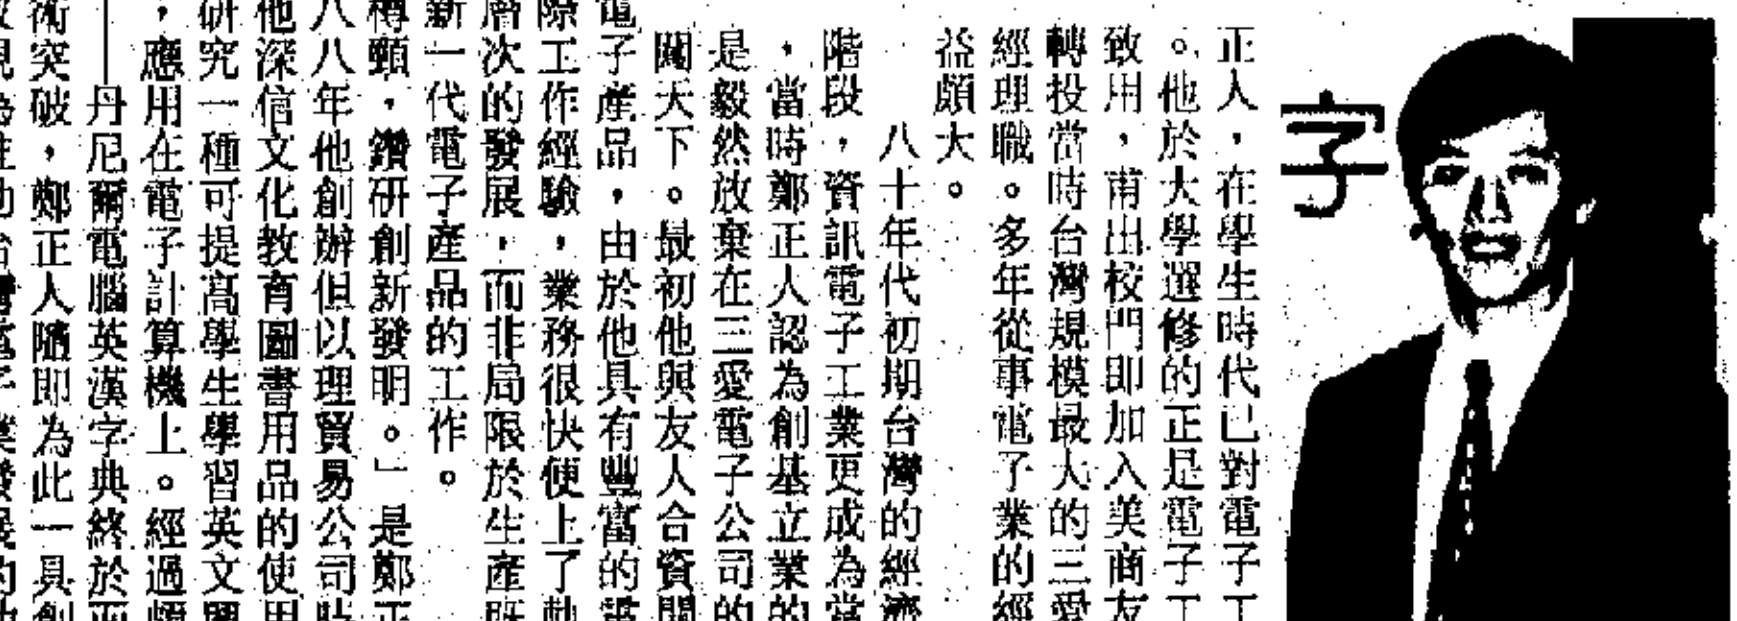 字
正人，在學生時代已對電子工
。他於大學選修的正是電子工
致用，甫出校門即加入美商友
轉投當時台灣規模最大的三愛
經理職。多年從事電子業的經
益頗大。
八十年代初期台灣的經濟
階段，資訊電子工業更成為當
，當時鄭正人認為創基立業的
是毅然放棄在三愛電子公司的
闖天下。最初他與友人合資開
電子產品，由於他具有豐富的電
際工作經驗，業務很快便上了軌
層次的發展，而非局限於生產既
新一代電子產品的工作。
樽頸，鑽研創新發明。」是鄭正
八八年他創辦但以理貿易公司時
他深信文化教育圖書用品的使用
研究一種可提高學生學習英文興
，應用在電子計算機上。經過頻
——丹尼爾電腦英漢字典終於面
術突破，鄭正人隨即為此一具創